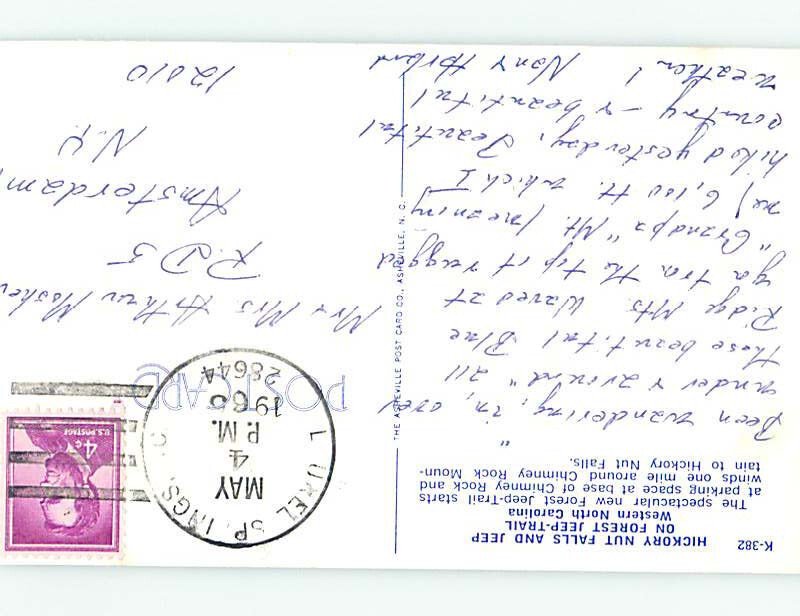 K-382
HICKORY NUT FALLS AND JEEP
ON FOREST JEEP-TRAIL
Western North Carolina
The spectacular new Forest Jeep-Trail starts
at parking space at base of Chimney Rock and
winds one mile around Chimney Rock Moun-
tain to Hickory Nut Falls.
"
Been wandering, in, over
under & around" all
these beautiful Blue
Ridge Mts. Waved at
ya from the top of rugged
"Grandpa" Mt. (meaning
me) 6,100 ft. which I
hiked yesterday. Beautiful
country — & beautiful
weather!
THE ASHEVILLE POST CARD CO., ASHEVILLE, N. C.
POSTCARD
L UREL SP INGS,
MAY
4
P.M.
1968
28644
4¢
U.S. POSTAGE
Mr & Mrs Arthur
R.D 5
Amsterdam,
N.Y.
12010